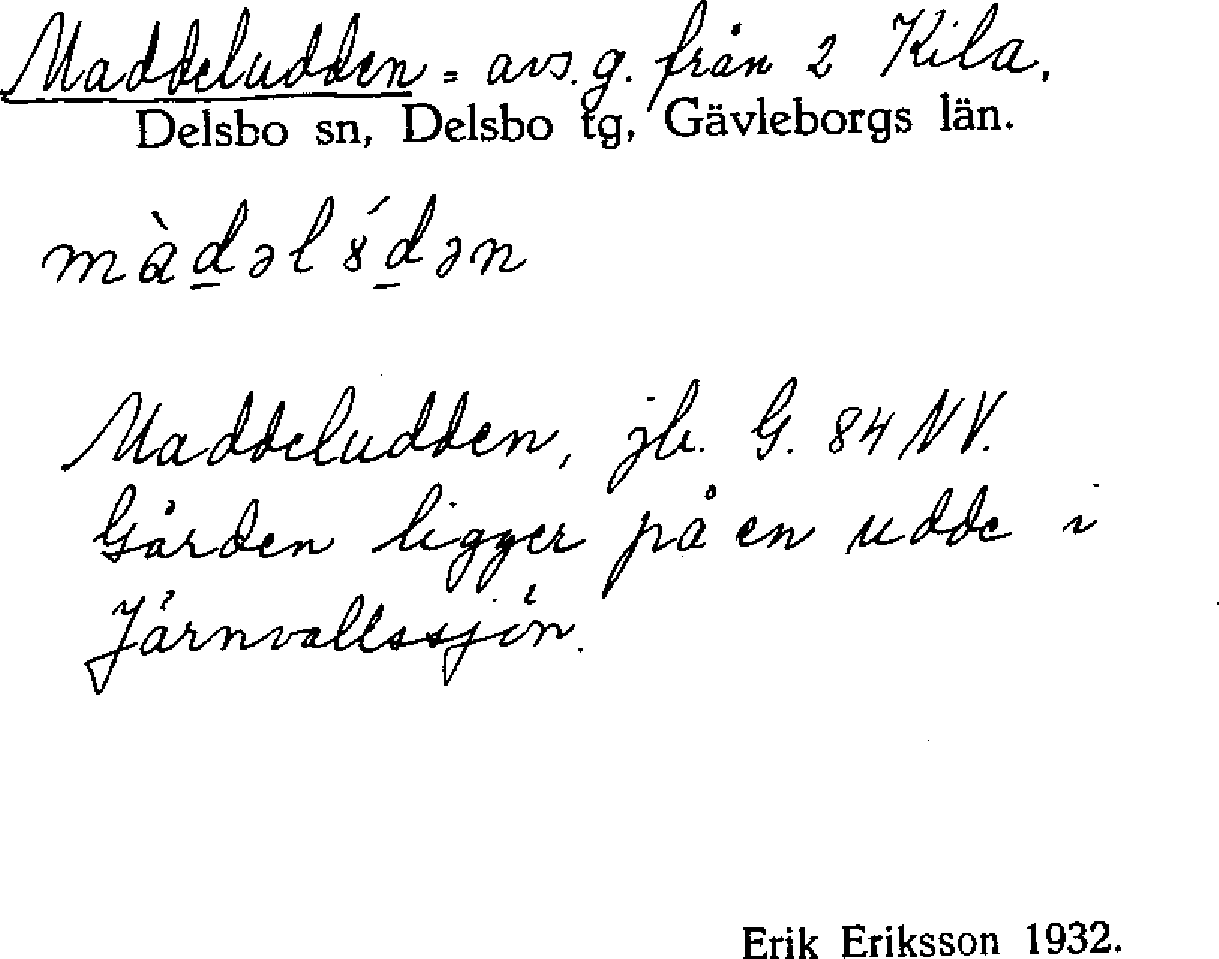 Maddeludden = avs. g. från 2 Kila.
Delsbo sn, Delsbo tg, Gävleborgs län.
màd̲əl ɤ́d̲ən
Maddeludden, jb. G. 84 NV.
Gården ligger på en udde i
Järnvallssjön.
Erik Eriksson 1932.